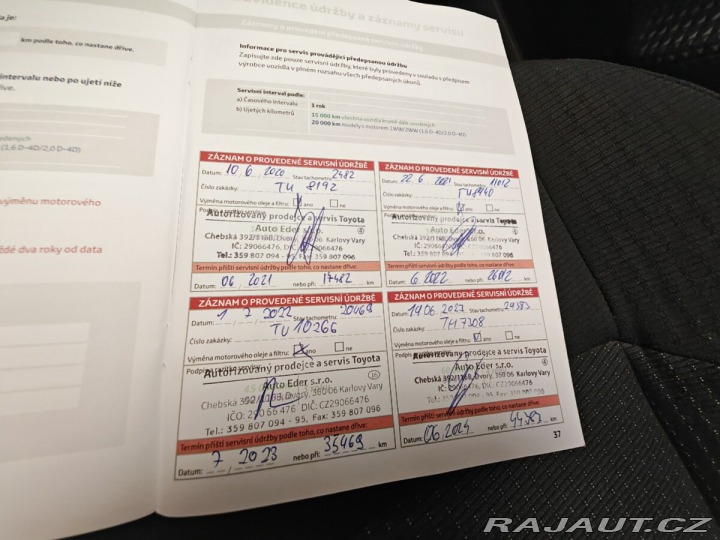 a je:
km podle toho, co nastane dříve.
intervalu nebo po ujetí níže
(1,6 D-4D/2,0 D-4D)
výměnu motorového
dé dva roky od data
evidence údržby a záznamy servisu
Záznamy o provedení předepsané servisní údržby
Informace pro servis provádějící předepsanou údržbu
Zapisujte zde pouze servisní údržby, které byly provedeny v souladu s předpisem
výrobce vozidla v plném rozsahu všech předepsaných úkonů.
Servisní interval podle:
a) Časového intervalu 1 rok
b) Ujetých kilometrů 15 000 km všechna vozidla kromě dále uvedených
20 000 km modely s motorem 1WW/2WW (1,6 D-4D/2,0 D-4D)
ZÁZNAM O PROVEDENÉ SERVISNÍ ÚDRŽBĚ
Datum: 10. 6. 2020 Stav tachometru: 2482
Číslo zakázky: TU 8192
Výměna motorového oleje a filtru: ano ne
Autorizovaný prodejce a servis Toyota
Auto Eder s.r.o.
Chebská 392/118B, Dvory, 360 06 Karlovy Vary
IČ: 29066476, DIČ: CZ29066476
Tel.: 359 807 094 - 95, Fax: 359 807 096
Termín příští servisní údržby podle toho, co nastane dříve:
Datum: 06. 2021 nebo při: 17482 km
ZÁZNAM O PROVEDENÉ SERVISNÍ ÚDRŽBĚ
Datum: 22. 6. 2021 Stav tachometru: 11012
Číslo zakázky:
Výměna motorového oleje a filtru: ano ne
Autorizovaný prodejce a servis Toyota
Auto Eder s.r.o.
Chebská 392/118B, Dvory, 360 06 Karlovy Vary
IČ: 29066476, DIČ: CZ29066476
Tel.: 359 807 094 - 95, Fax: 359 807 096
Termín příští servisní údržby podle toho, co nastane dříve:
Datum: 6. 2022 nebo při: 26012 km
ZÁZNAM O PROVEDENÉ SERVISNÍ ÚDRŽBĚ
Datum: 1 7 2022 Stav tachometru: 20469
Číslo zakázky: TU 10266
Výměna motorového oleje a filtru: ano ne
Autorizovaný prodejce a servis Toyota
Auto Eder s.r.o.
Chebská 392/118B, Dvory, 360 06 Karlovy Vary
IČO: 290 66 476, DIČ: CZ29066476
Tel.: 359 807 094 - 95, Fax: 359 807 096
Termín příští servisní údržby podle toho, co nastane dříve:
Datum: 7 2023 nebo při: 35469 km
ZÁZNAM O PROVEDENÉ SERVISNÍ ÚDRŽBĚ
Datum: 14 06 2023 Stav tachometru: 29383
Číslo zakázky: TU 7308
Výměna motorového oleje a filtru: ano ne
Autorizovaný prodejce a servis Toyota
Auto Eder s.r.o.
Chebská 392/118B, Dvory, 360 06 Karlovy Vary
IČ: 29066476, DIČ: CZ29066476
Tel.: 359 807 094 - 95, Fax: 359 807 096
Termín příští servisní údržby podle toho, co nastane dříve:
Datum: 06 2024 nebo při: 44383 km
37
RAJAUT.CZ